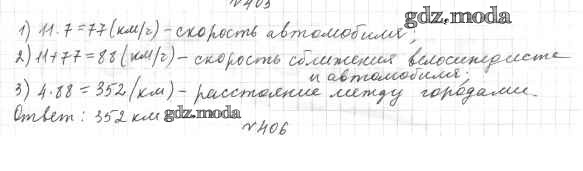 №405
gdz.moda
1) 11·7=77(км/г)-скорость автомобиля;
2) 11+77=88(км/г)-скорость сближения велосипедиста
и автомобиля;
3) 4·88=352(км)-расстояние между городами.
Ответ: 352 км gdz.moda
№406